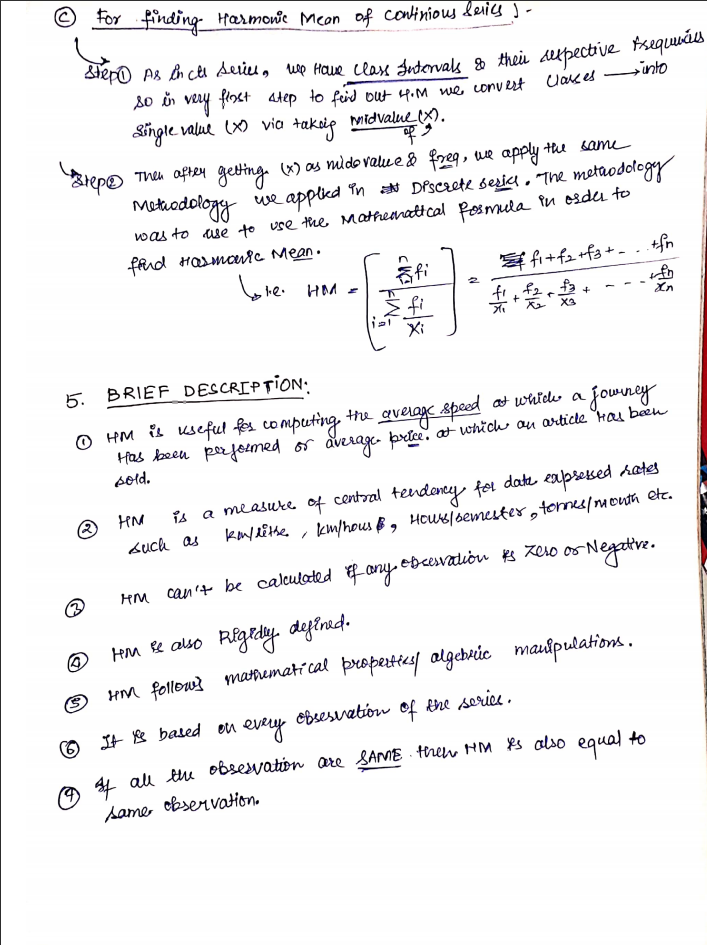 Ⓒ For finding Harmonic Mean of continious Series :-
Step① As in cts series, we Have class Intervals & their respective frequencies
so in very first step to find out H.M we convert classes ⟶ into
single value (x) via taking midvalue (x).
of
Step② Then after getting (x) as mid value & freq, we apply the same
Methodology we applied in Discrete series. The methodology
was to use to use the Mathematical formula in order to
find Harmonic Mean.
i.e. HM = [ \frac{\sum_{i=1}^{n} fi}{\sum_{i=1}^{n} \frac{fi}{xi}} ] = \frac{f1+f2+f3+- . . +fn}{\frac{f1}{x1} + \frac{f2}{x2} + \frac{f3}{x3} + - - - - + \frac{fn}{xn}}
5. BRIEF DESCRIPTION:
① HM is useful for computing the average speed at which a journey
Has been performed or average price. at which an article Has been
sold.
② HM is a measure of central tendency for data expressed rates
such as km/litre, km/hour, Hours/semester, tonnes/month etc.
③ HM can't be calculated if any observation is Zero or Negative.
④ HM is also Rigidly defined.
⑤ HM follows mathematical properties/ algebric manipulations.
⑥ It is based on every observation of the series.
⑦ If all the observation are SAME then HM is also equal to
same observation.